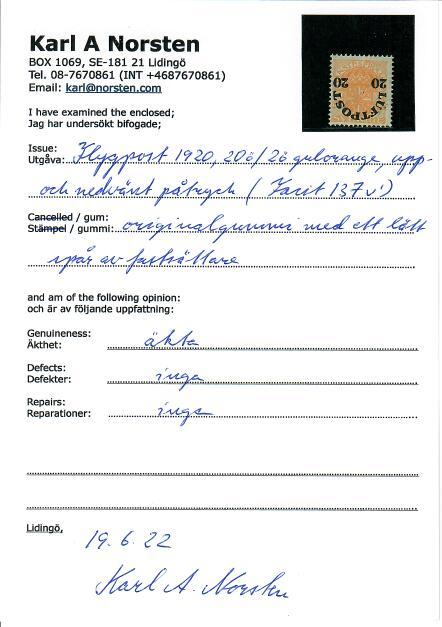 Karl A Norsten
BOX 1069, SE-181 21 Lidingö
Tel. 08-7670861 (INT +4687670861)
Email: karl@norsten.com
LUFTPOST
20 20
I have examined the enclosed;
Jag har undersökt bifogade;
Issue:
Utgåva: Flygpost 1920, 20ö/2ö gulorange, upp-
och nedvänt påtryck (Facit 137v¹)
Cancelled / gum:
Stämpel / gummi: originalgummi med ett lätt
spår av fastsättare
and am of the following opinion:
och är av följande uppfattning:
Genuineness:
Äkthet: äkta
Defects:
Defekter: inga
Repairs:
Reparationer: inga
Lidingö,
19.6.22
Karl A. Norsten